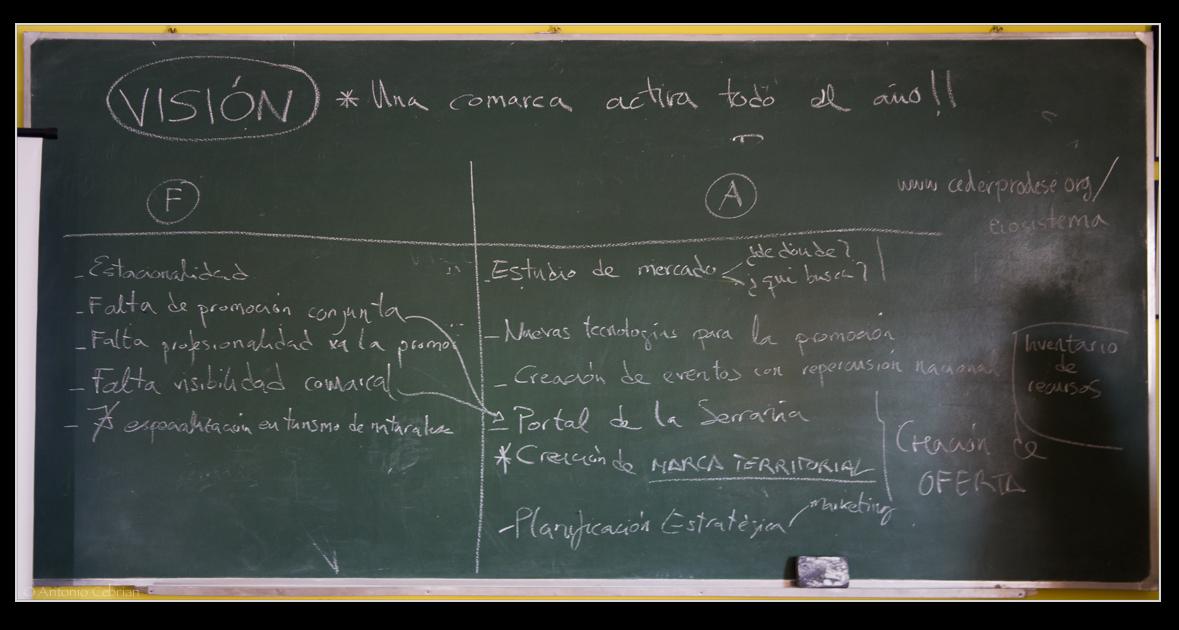 VISIÓN * Una comarca activa todo el año!!
www cederprodese.org/
ecosistema
F
- Estacionalidad
- Falta de promoción conjunta
- Falta profesionalidad xa la promo
- Falta visibilidad comarcal
- especialización en turismo de naturaleza
A
- Estudio de mercado
¿de dónde?
¿qué busca?
- Nuevas tecnologías para la promoción
- Creación de eventos con repercusión nacional
- Portal de la Serranía
* Creación de MARCA TERRITORIAL
- Planificación Estratégica
marketing
Inventario
de
recursos
Creación de
OFERTA
© Antonio Cebrián